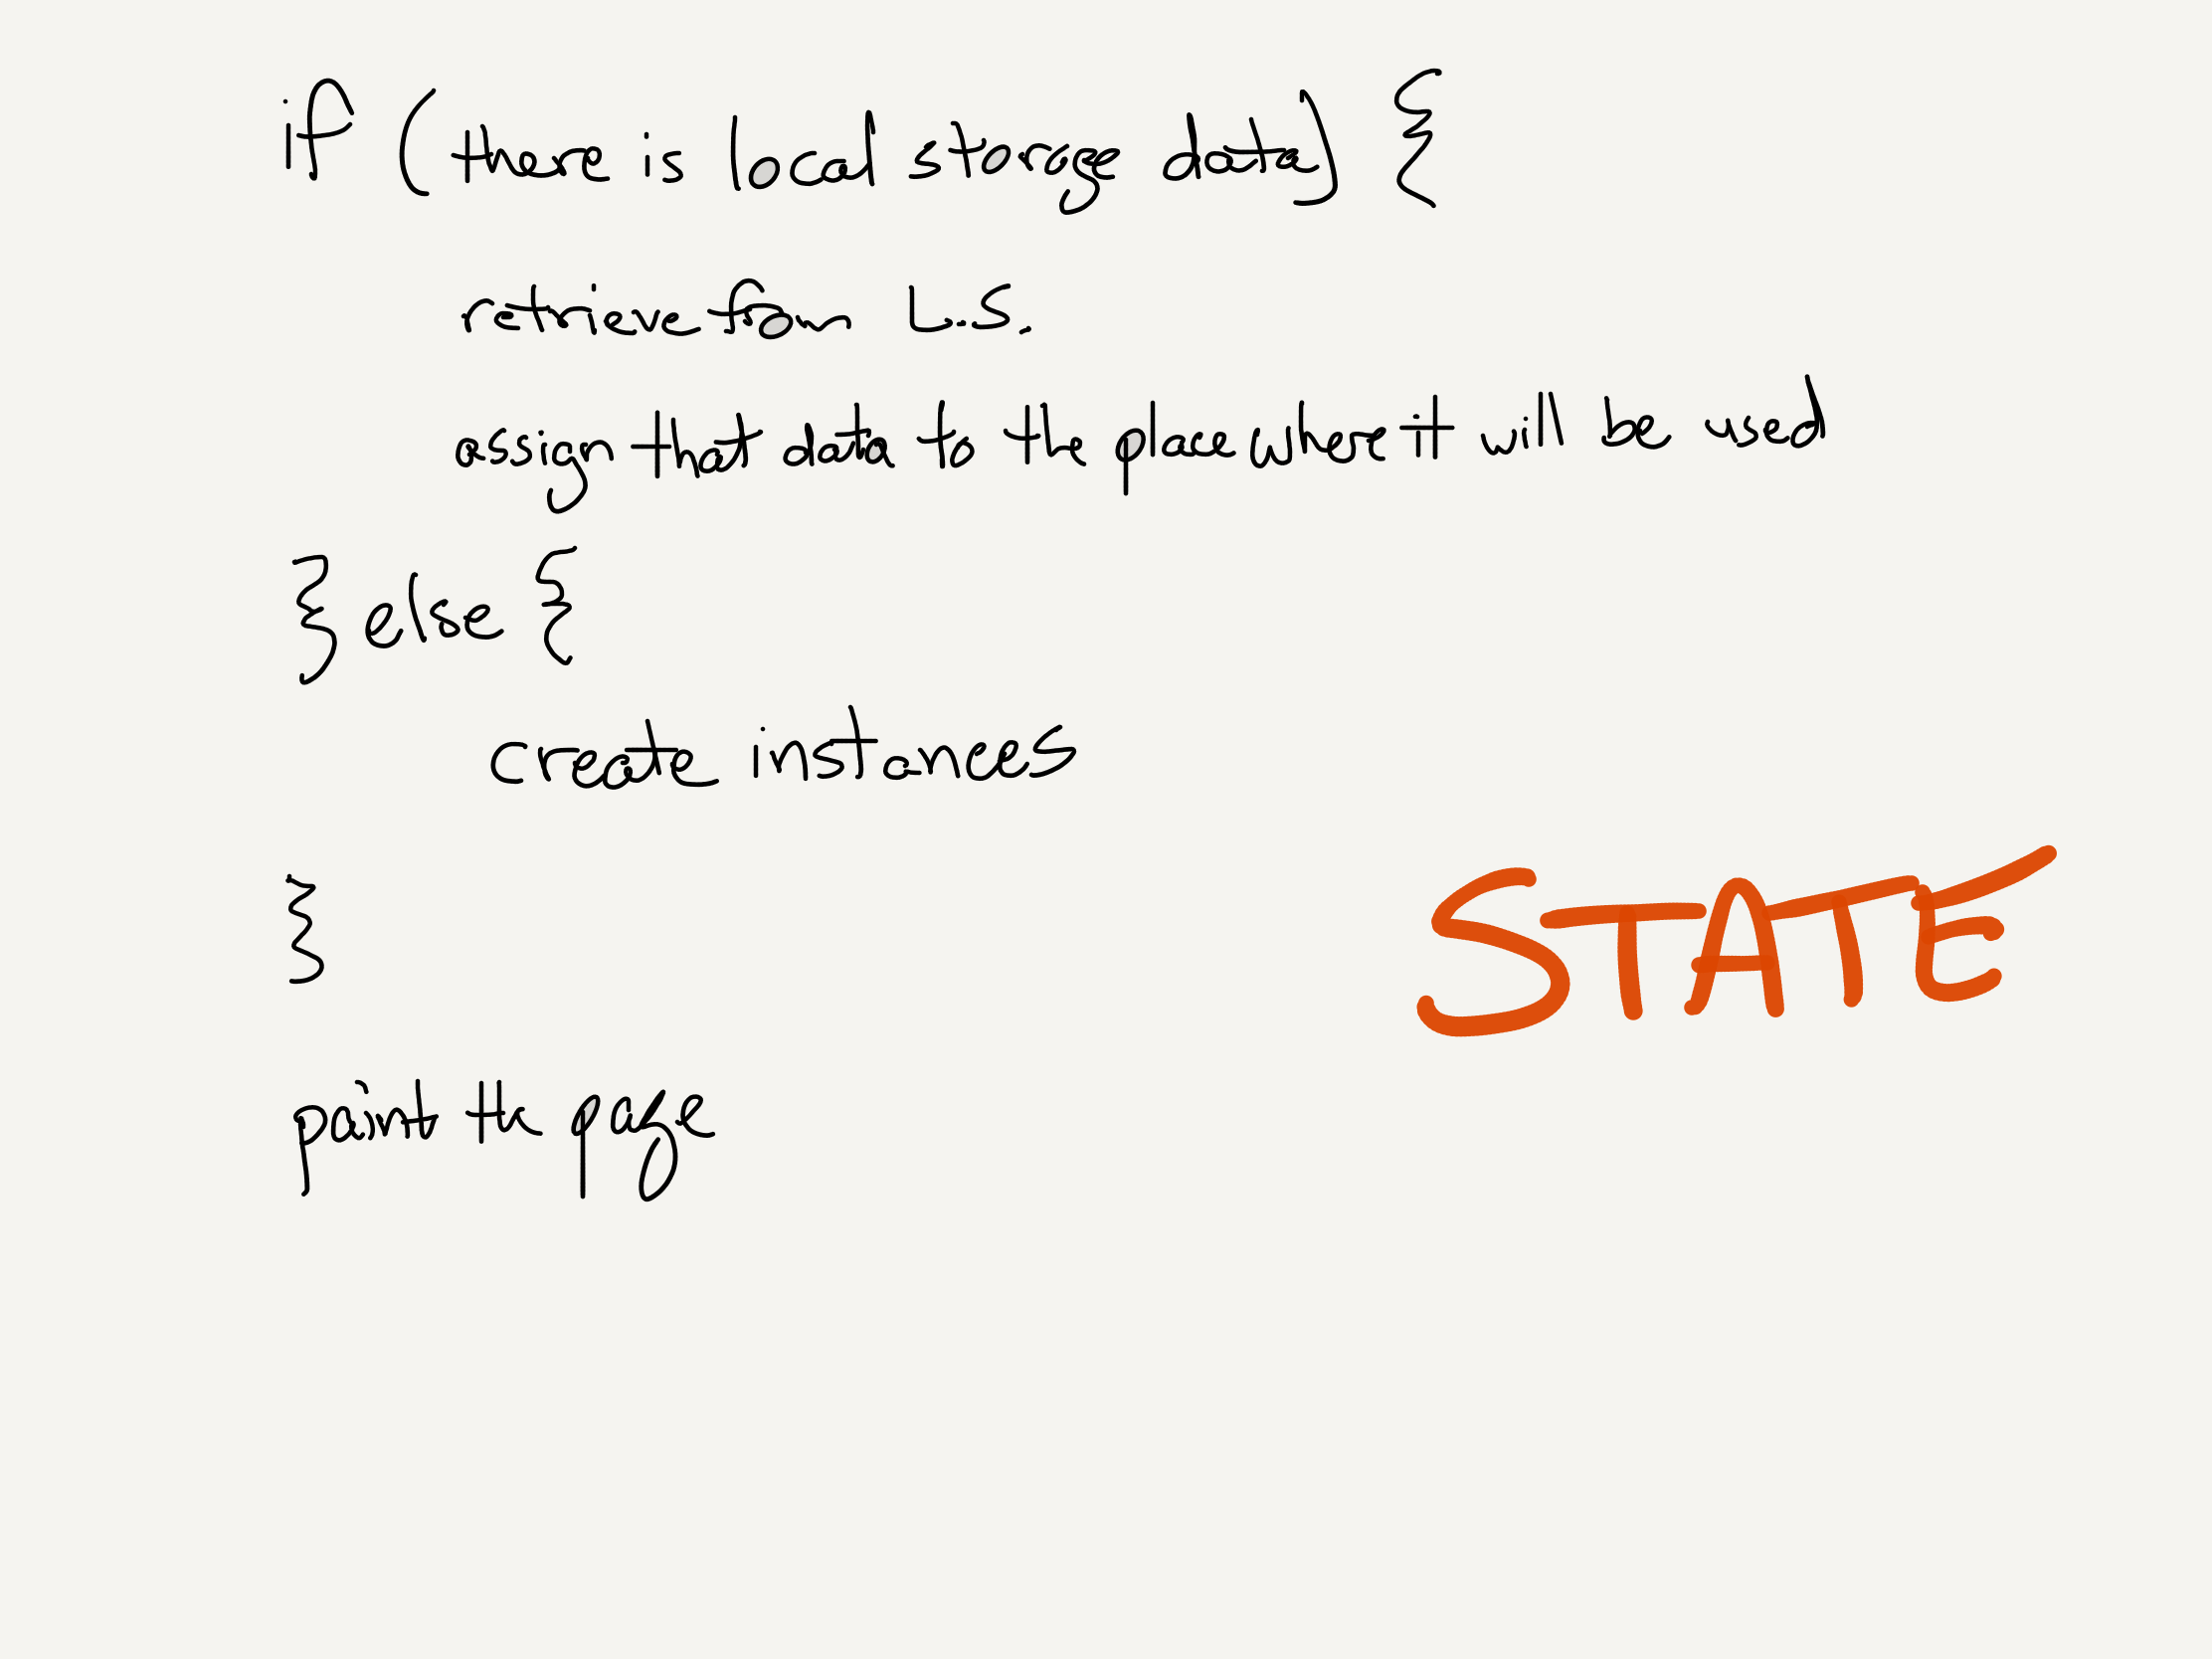 if (there is local storage data) {
retrieve from L.S.
assign that data to the place where it will be used
} else {
create instances
}
STATE
paint the page